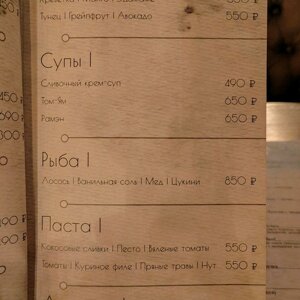 Креветка | Манго | Эдамаме 550 ₽
Тунец | Грейпфрут | Авокадо 550 ₽
Супы |
Сливочный крем-суп 490 ₽
Том-Ям 650 ₽
Рамэн 650 ₽
450
690
300
Рыба |
Лосось | Ванильная соль | Мед | Цукини 850 ₽
Паста |
Кокосовые сливки | Песто | Вяленые томаты 550 ₽
Томаты | Куриное филе | Пряные травы | Нут 550 ₽
490 ₽
390 ₽